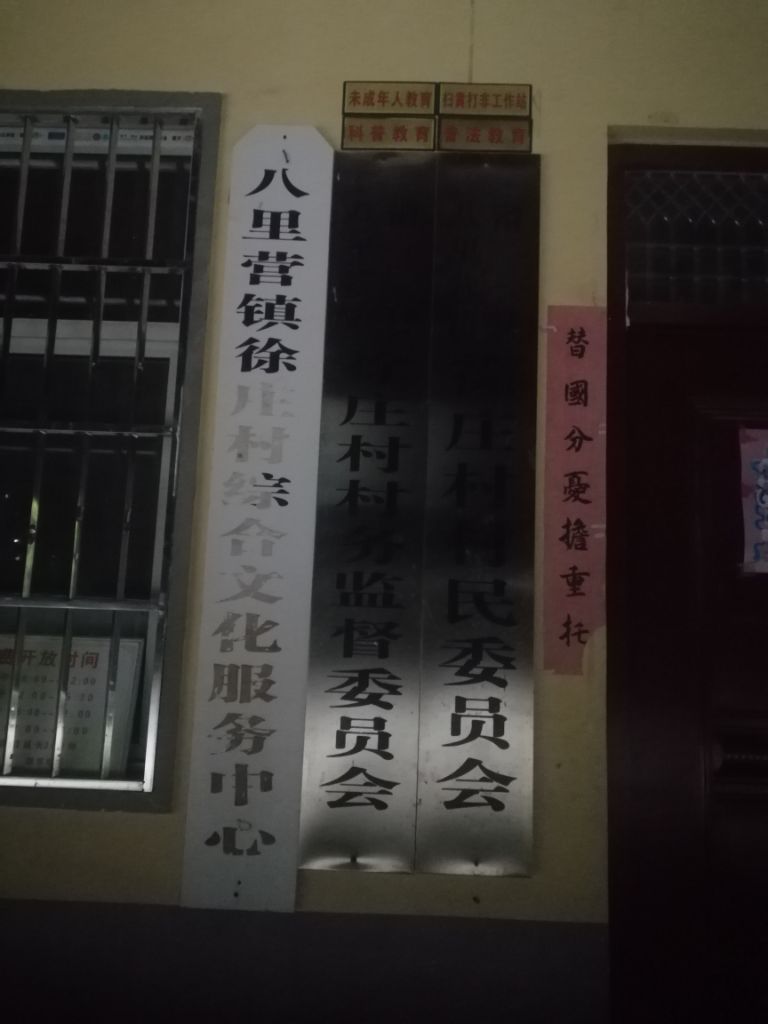 未成年人教育
扫黄打非工作站
科普教育
普法教育
八里营镇徐庄村综合文化服务中心
庄村村务监督委员会
庄村村民委员会
替國分憂擔重托
费开放时间